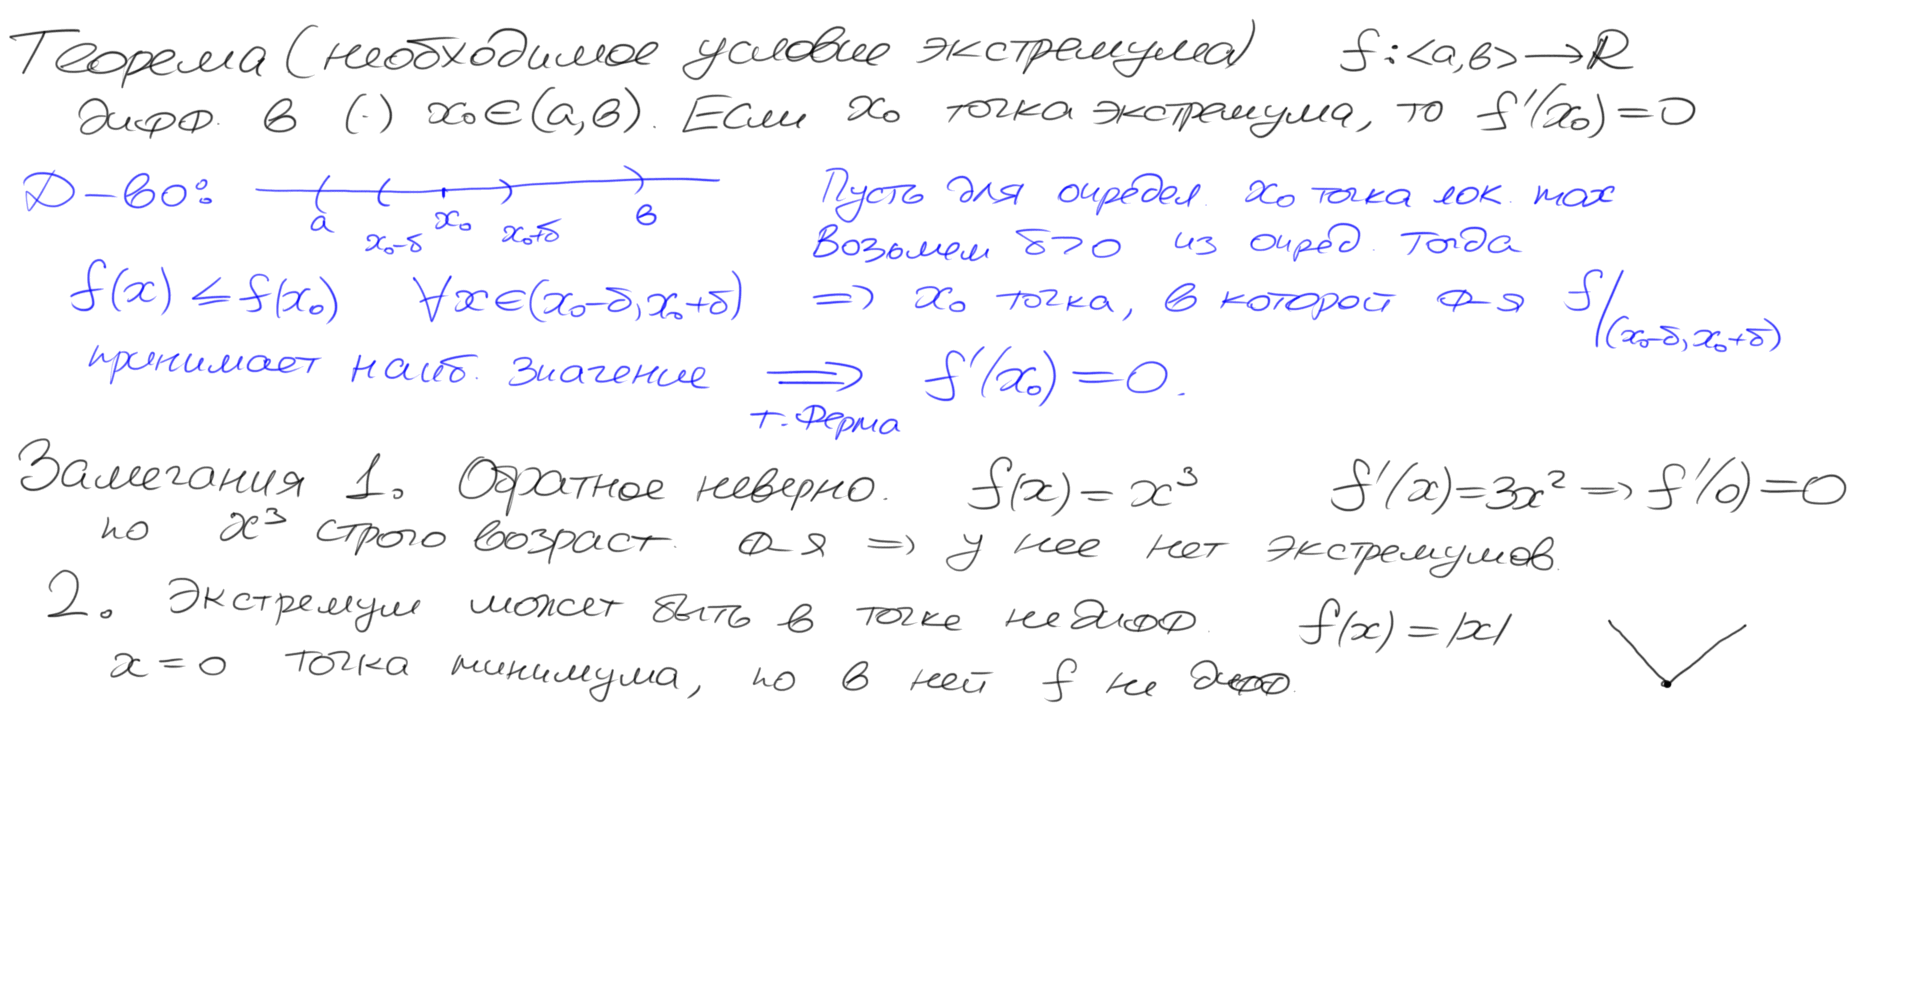 Теорема (необходимое условие экстремума) f: <a,b> → R
дифф. в (·) x₀∈(a,b). Если x₀ точка экстремума, то f'(x₀)=0
Д-во: a x₀-δ x₀ x₀+δ b
Пусть для определ. x₀ точка лок. max
Возьмем δ>0 из опред. Тогда
f(x) ≤ f(x₀) ∀x∈(x₀-δ, x₀+δ) => x₀ точка, в которой ф-я f|(x₀-δ, x₀+δ)
принимает наиб. значение => т. Ферма f'(x₀)=0.
Замечания 1. Обратное неверно. f(x)=x³ f'(x)=3x² => f'(0)=0
но x³ строго возраст. ф-я => у нее нет экстремумов.
2. Экстремум может быть в точке недифф. f(x)=|x|
x=0 точка минимума, но в ней f не дифф.